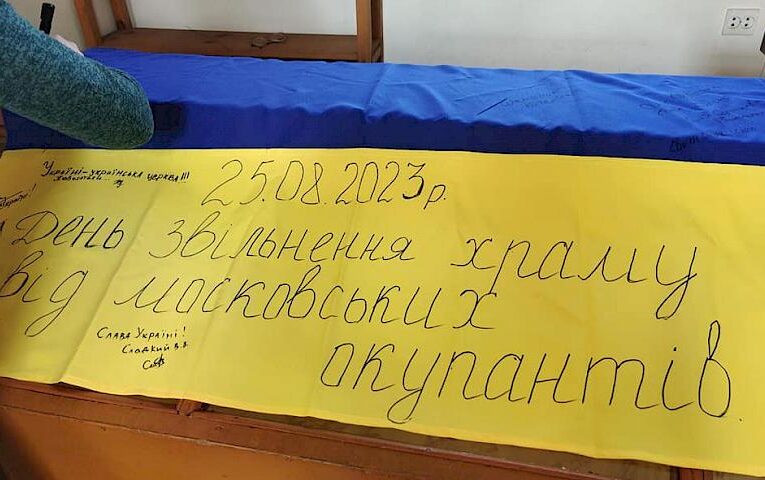 Україні-українська церква!!!
25.08.2023р.
День звільнення храму
від московських
окупантів.
Слава Україні!